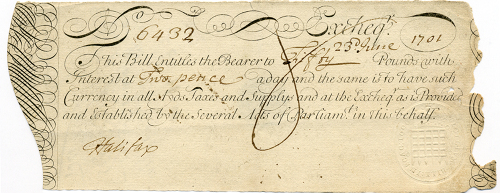 No 6432 Excheqr.
23d June 1701
This Bill Entitles the Bearer to Fifty Pounds with
Interest at Two pence a day and the same is to have such
Currency in all Aids Taxes and Supplys and at the Excheqr. as is Provided
and Established by the Several Acts of Parliamt. in this behalf.
Halifax